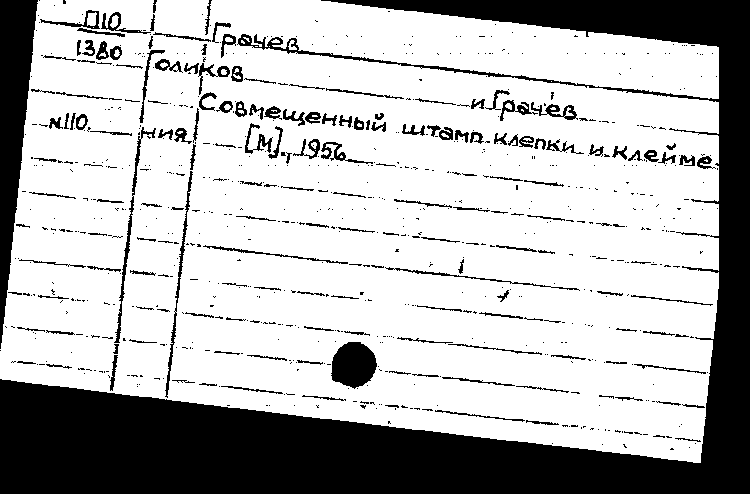 П10
1380
Грачев
Голиков и Грачев
Совмещенный штамп клепки и клейме-
№110. ния [М]., 1956